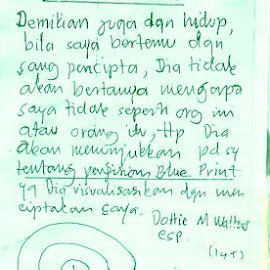 Demikian juga dgn hidup,
bila saya bertemu dgn
sang pencipta, Dia tidak
akan bertanya mengapa
saya tidak seperti org ini
atau orang itu, ttp Dia
akan menunjukkan pd sy
tentang Blue Print
yg Dia visualisasikan dan men
ciptakan saya.
Dottie M Walters
CSP.